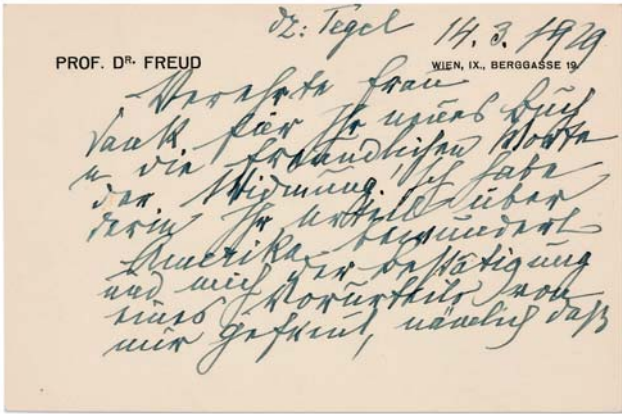 dz: Tegel
14. 3. 1929
PROF. DR. FREUD
WIEN, IX., BERGGASSE 19.
Verehrte Frau
Dank für Ihr neues Buch
u die freundlichen Worte
der Widmung. Ich habe
darin Ihr Urteil über
Amerika bewundert
und mich der Bestätigung
eines Vorurteils von
mir gefreut, nämlich daß